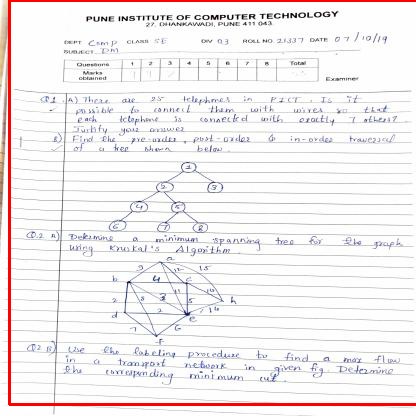 PUNE INSTITUTE OF COMPUTER TECHNOLOGY
27, DHANKAWADI, PUNE 411 043.
DEPT Comp CLASS SE DIV 03 ROLL NO. 21337 DATE 07/10/19
SUBJECT: DM
Questions 1 2 3 4 5 6 7 8 Total
Marks obtained
Examiner
Q1 A) There are 25 telephones in PICT. Is it
possible to connect them with wires so that
each telephone is connected with exactly 7 others?
Justify your answer
B) Find the pre-order, post-order & in-order traversal
of a tree shown below.
1
2 3
4 5
6 7 8
Q.2 A) Determine a minimum spanning tree for the graph
using Kruskal's Algorithm.
a
9 12 15
b 4 c
3 11 10
2 8 5 h
d 2 e 14
7 6
f
Q2 B) Use the labeling procedure to find a max flow
in a transport network in given fig. Determine
the corresponding minimum cut.